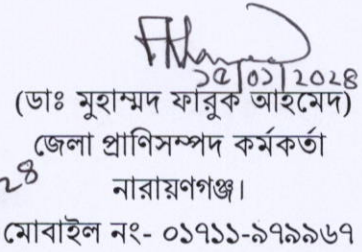 ১৫/০১/2028
(ডাঃ মুহাম্মদ ফারুক আহমেদ)
জেলা প্রাণিসম্পদ কর্মকর্তা
28
নারায়ণগঞ্জ।
মোবাইল নং- ০১৭১১-৯৭৯৯৬৭